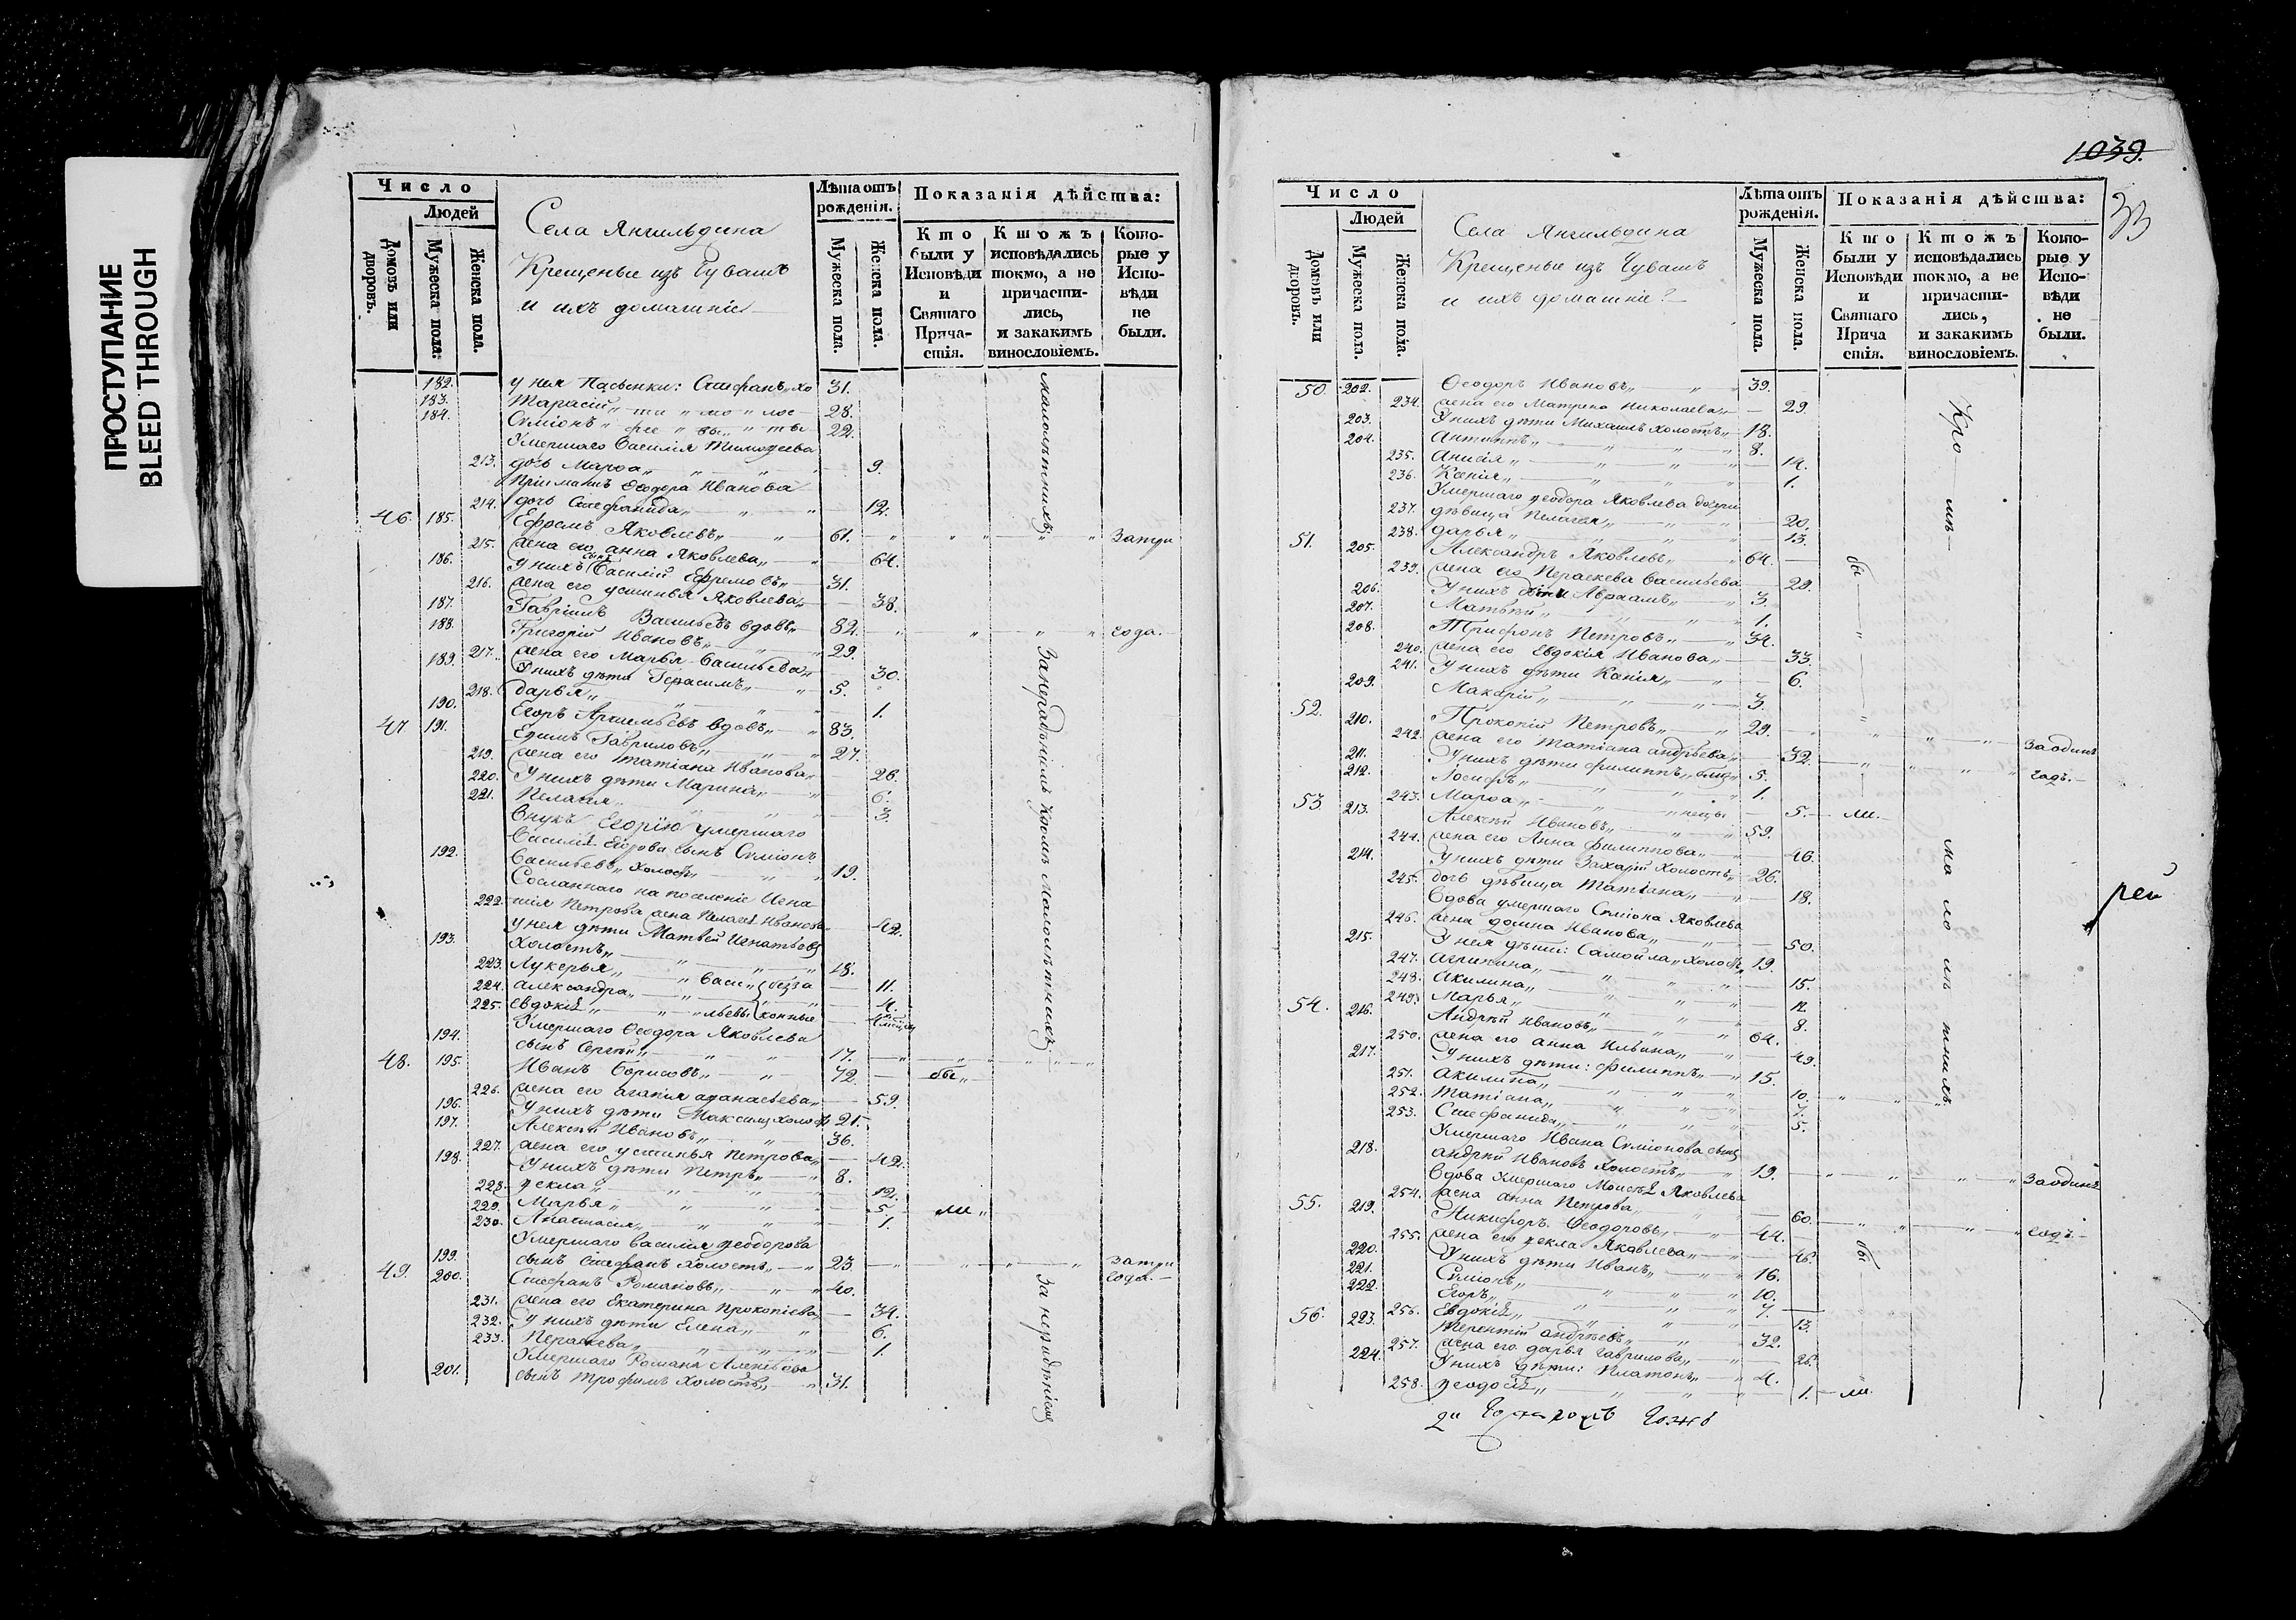 ПРОСТУПАНИЕ
BLEED THROUGH
Число
Людей
Домовъ или дворовъ.
Мужеска пола.
Женска пола.
Села Янгильдина
Крещеные изъ Чувашъ
и ихъ домашніе
Лѣта отъ рожденія.
Мужеска пола.
Женска пола.
Показанія дѣйства:
Кто были у Исповѣди и Святаго Прича-стія.
Ктожъ исповѣдались токмо, а не причасти-лись, и закакимъ винословіемъ.
Кото-рые у Испо-вѣди не были.
182. у нея Пасынки: Стефанъ „ хо 31.
183. Тарасій „ 28.
184. Сѵміонъ „ 22.
Умершаго Василія Тимофеева
213. дочь Марѳа „ 9.
Пріимышъ Ѳеодора Иванова
214. дочь Стефанида „ 12.
46. 185. Ефремъ Яковлевъ „ 61. Затри
215. жена его анна Яковлева „ 64.
186. У нихъ сынъ Василій Ефремовъ „ 31.
216. жена его устинья Яковлева „ 38.
187. Гавріилъ Васильевъ вдовъ „ 82. года.
188. Григорій Ивановъ „ 29.
217. жена его Марья Васильева „ 30.
189. У нихъ дѣти Герасимъ „ 5.
218. дарья „ 1.
190. Егоръ вдовъ „ 83.
47 191. Ефимъ Гавриловъ „ 27.
219. жена его татіана Иванова „ 26.
220. У нихъ дѣти Марина „ 6.
221. Пелагія „ 3.
Внукъ Егорію умершаго
Василія Егорова сынъ Сѵміонъ
192. Васильевъ „ холостъ „ 19.
Сосланнаго на поселеніе Игна
222. тія Петрова жена Пелагея Иванова 42.
у нея дѣти Матвей Игнатьевъ
193. холостъ „ 18.
223. Лукерья „ 11.
224. александра „ 4.
225. евдокія „
Умершаго Ѳеодора Яковлева
194. сынъ Сергѣй „ 17.
48. 195. Иванъ Борисовъ „ 72. бы „
226. жена его агапія аѳанасьева „ 59.
196. У нихъ дѣти Максимъ холостъ 21.
197. Алексѣй Ивановъ „ 36.
227. жена его устинья Петрова „ 42.
198. У нихъ дѣти Петръ „ 8.
228. ѳекла „ 12.
229. Марья „ 5. ли „
230. Анастасія „ 1.
Умершаго василія ѳеодорова
199. сынъ стефанъ холостъ „ 23 затри
49. 200. Стефанъ Романовъ „ 40. года.
231. жена его Екатерина Прокопіева „ 34.
232. У нихъ дѣти Елена „ 6.
233. Параскева „ 1.
Умершаго Романа Алексѣева
201. сынъ трофимъ холостъ „ 31.
малолѣтнихъ
Занерадѣніемъ Кромѣ малолѣтнихъ
За нерадѣніемъ
1039.
33
Число
Людей
Домовъ или дворовъ.
Мужеска пола.
Женска пола.
Села Янгильдина
Крещеные изъ Чувашъ
и ихъ домашніе
Лѣта отъ рожденія.
Мужеска пола.
Женска пола.
Показанія дѣйства:
Кто были у Исповѣди и Святаго Прича стія.
Ктожъ исповѣдались токмо, а не причасти-лись, и закакимъ винословіемъ.
Кото-рые у Испо-вѣди не были.
50. 202. Ѳеодоръ Ивановъ „ 39.
234. жена его Матрена Николаева „ 29.
203. У нихъ дѣти Михаилъ холостъ „ 18.
204. Антипъ „ 8.
235. Анисія „ 14.
236. Ксенія „ 1.
Умершаго ѳеодора Яковлева дочери
237. дѣвица Пелагея „ 20.
238. дарья „ 13.
51. 205. Александръ Яковлевъ „ 64.
239. жена его Параскева Васильева 22.
206. У нихъ дѣти Авраамъ „ 3.
207. Матвѣй „ 1.
208. Трифонъ Петровъ „ 34.
240. жена его Евдокія Иванова „ 33.
241. У нихъ дѣти Ксенія „ 6.
209. Макарій „ 3.
52. 210. Прокопій Петровъ „ 29.
242. жена его Татіана андрѣева „ 32. Заодинъ
211. У нихъ дѣти филиппъ „ близ „ 5. годъ.
212. Іосифъ „ 1.
243. Марѳа „ нецы 5. ли.
53. 213. Алексѣй Ивановъ „ 59.
244. жена его Анна филиппова „ 46.
214. У нихъ дѣти Захарій Холостъ „ 26.
245. дочь дѣвица Татіана „ 18.
Вдова умершаго Сѵміона Яковлева
246. жена домна Иванова „ 50.
215. У нея дѣти: Самойла „ холостъ „ 19.
247. агрипина „ 15.
248. акилина „ 12.
249. Марья „ 8.
54. 216. Андрѣй Ивановъ „ 64.
250. жена его анна Ильина „ 49.
217. У нихъ дѣти: филиппъ „ 15.
251. акилина „ 10.
252. татіана „ 7.
253. Стефанида „ 5.
Умершаго Ивана Сѵміонова сынъ
218. андрѣй Ивановъ холостъ „ 19.
Вдова Умершаго Моисѣя Яковлева Заодинъ
254. жена анна Петрова „ 60.
55. 219. Никифоръ Ѳеодоровъ „ 44. годъ.
255. жена его ѳекла Яковлева „ 46.
220. У нихъ дѣти Иванъ „ 16.
221. Сѵміонъ „ 10.
222. Егоръ „ 7.
256. Евдокія „ 13.
56. 223. терентій андрѣевъ „ 32.
257. жена его дарья гаврилова „ 26.
224. У нихъ дѣти: Платонъ „ 4.
258. ѳеодосія „ 1. ли.
бы
Кро мѣ
ма ло лѣ тнихъ
бы
рей